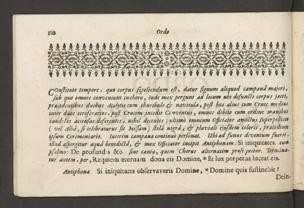 Ordo
Constituto tempore, quo corpus sepeliendum est, datur signum aliquod campana majori,
sub quo omnes conveniunt in choro, inde mox pergunt ad locum ubi defuncti corpus jacet,
praecedentibus duobus Acolytis cum thuribulo & navicula, post hos alius cum Cruce medius
inter duos ceroferarios, post Crucem incedit Conventus, omnes debito cum ordine manibus
candelas accensas deferentes, nihil dicentes : ultimo omnium Officiator amictus Superpelliceo
( vel Alba, si celebraturus sit Missam ) stola nigra, & pluviali ejusdem coloris, praecedente
ipsum Ceremoniario. Interim campana continuo pulsetur. Ubi ad funus deventum fuerit,
illud aspergitur aqua benedicta, & mox Officiator incipit Antiphonam: Si iniquitates. cum
psalmo: De profundis &c. sine cantu, quem Chorus alternatim prosequitur. Termina-
tur autem, per, Requiem aeternam dona eis Domine, * Et lux perpetua luceat eis.
Antiphona Si iniquitates observaveris Domine, * Domine quis sustinebit ?
Dein-